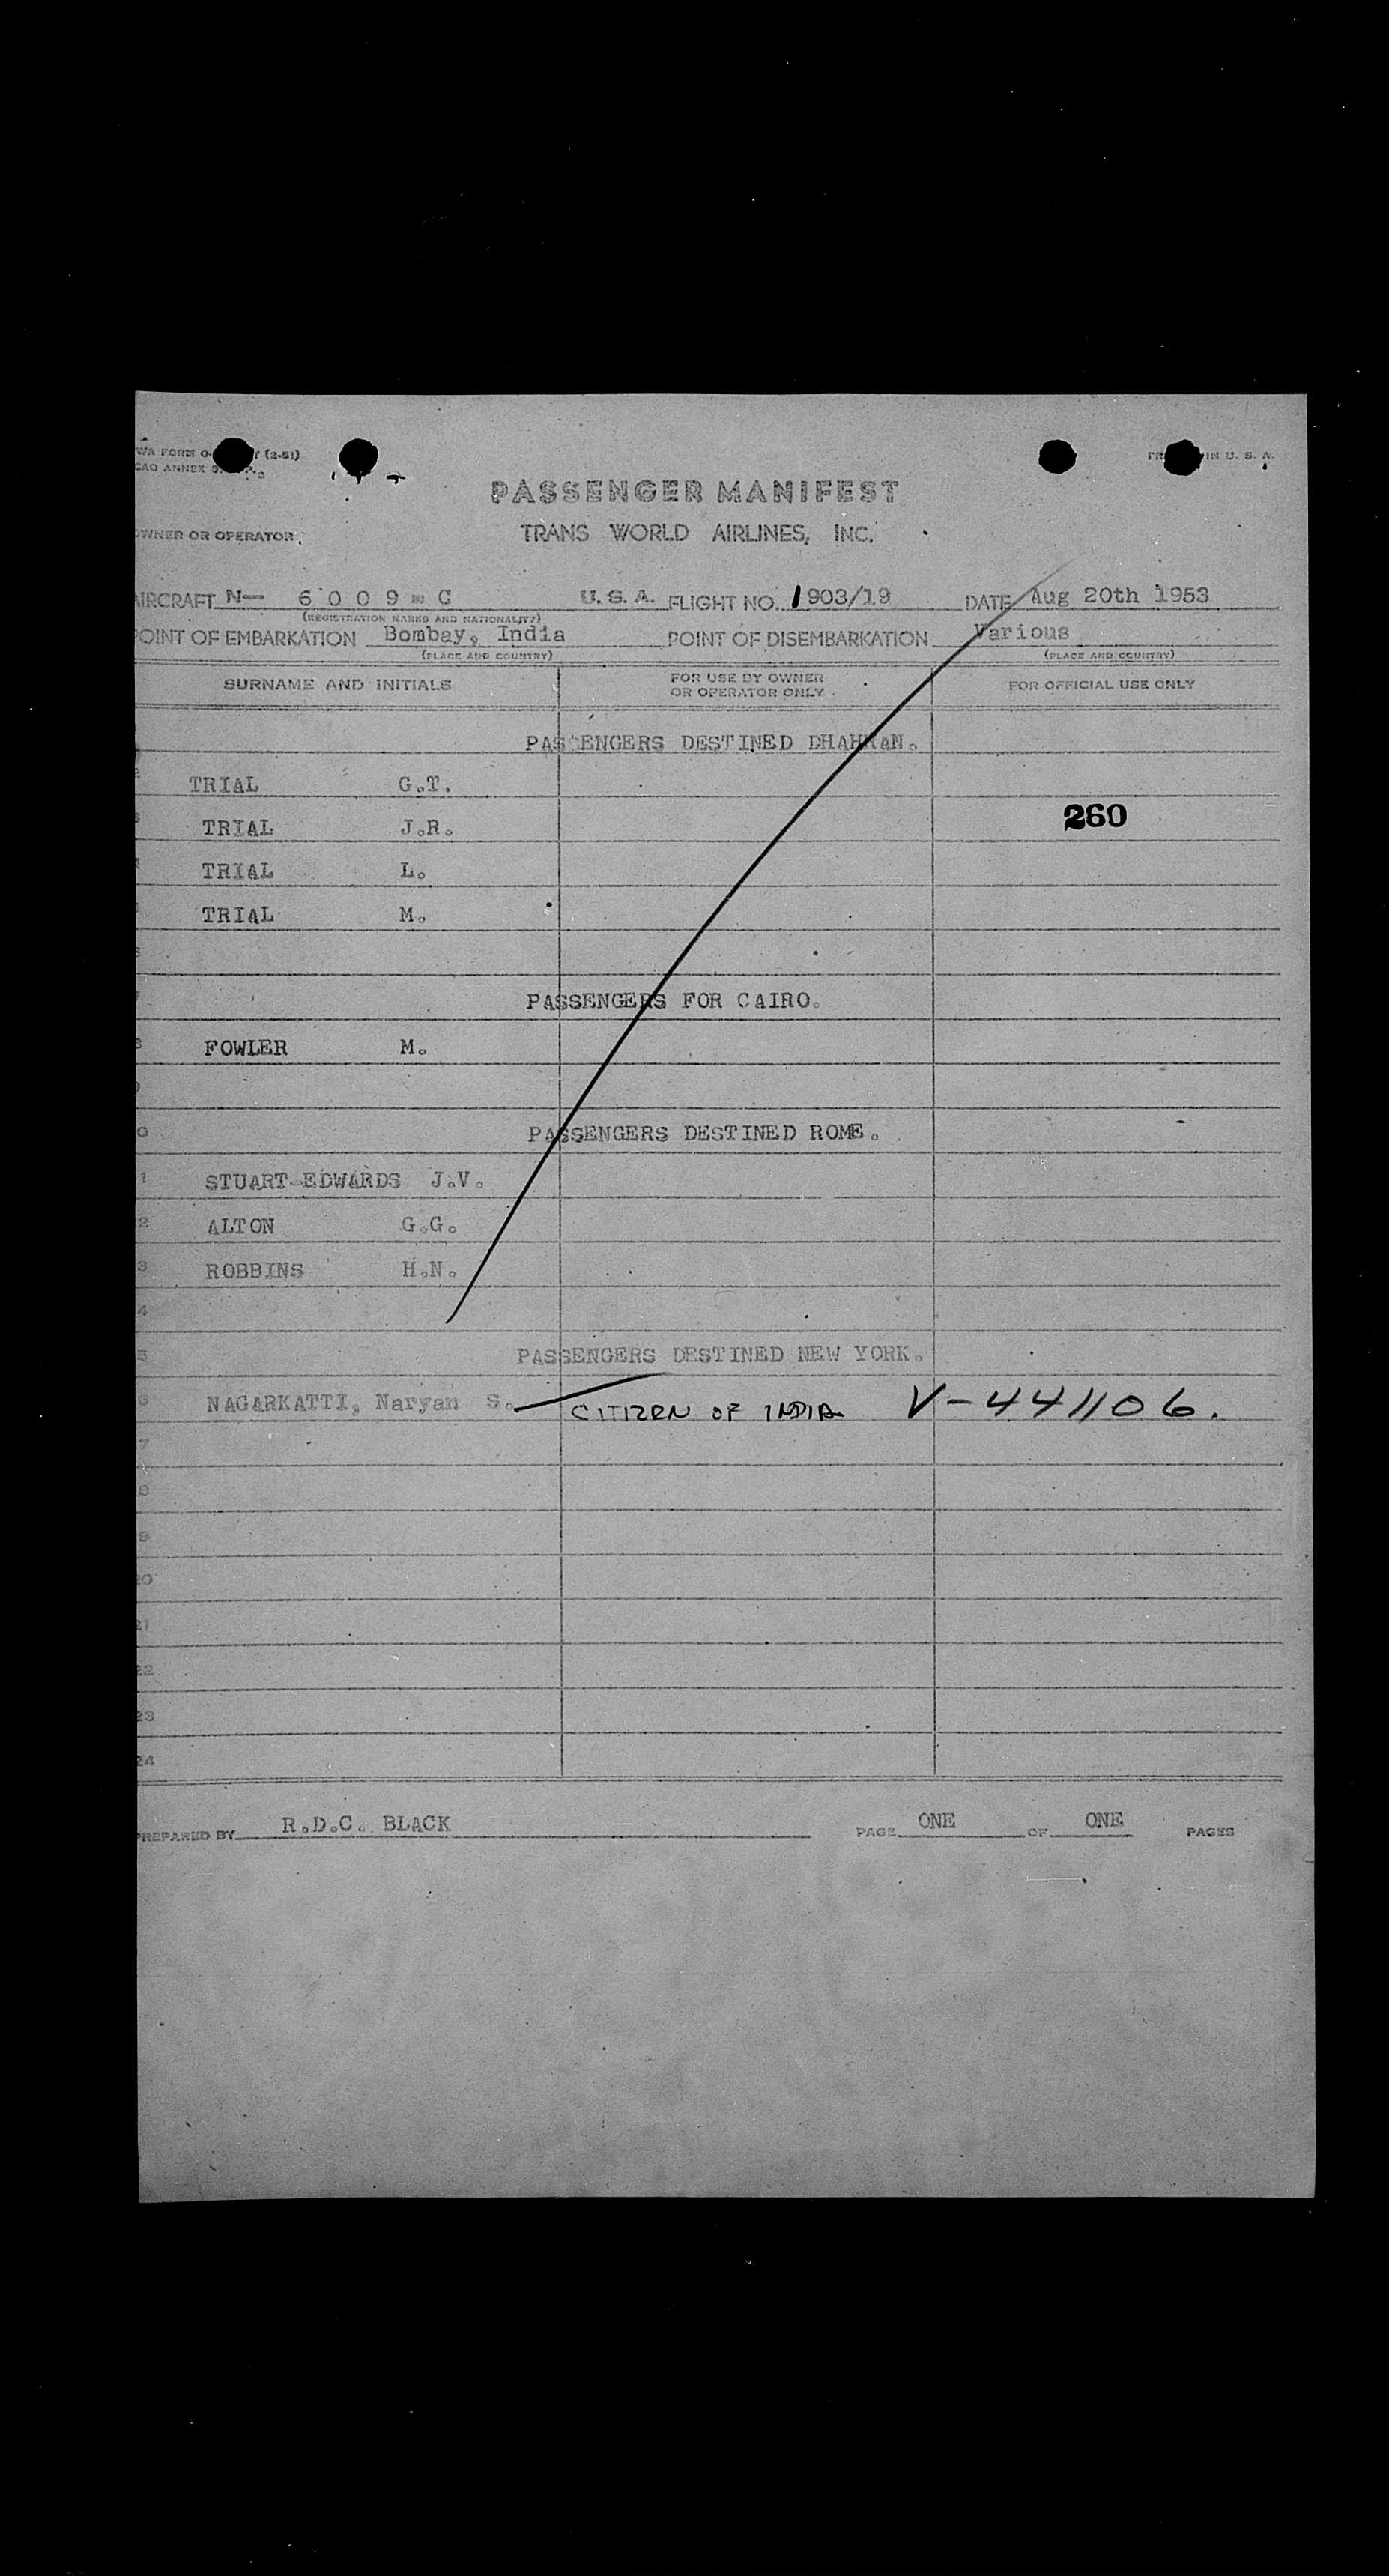 WA FORM O- (2-51)
CAO ANNEX 9.
IN U. S. A.
PASSENGER MANIFEST
OWNER OR OPERATOR TRANS WORLD AIRLINES, INC.
AIRCRAFT N- 6 0 0 9 - C U.S.A. FLIGHT NO. 1903/19 DATE Aug 20th 1953
(REGISTRATION MARKS AND NATIONALITY)
POINT OF EMBARKATION Bombay, India POINT OF DISEMBARKATION Various
(PLACE AND COUNTRY) (PLACE AND COUNTRY)
SURNAME AND INITIALS FOR USE BY OWNER OR OPERATOR ONLY FOR OFFICIAL USE ONLY
PASSENGERS DESTINED DHAHRAN.
2 TRIAL G.T.
3 TRIAL J.R. 260
4 TRIAL L.
5 TRIAL M.
6
7 PASSENGERS FOR CAIRO.
8 FOWLER M.
9
0 PASSENGERS DESTINED ROME.
1 STUART-EDWARDS J.V.
2 ALTON G.G.
3 ROBBINS H.N.
4
5 PASSENGERS DESTINED NEW YORK.
6 NAGARKATTI, Naryan S. CITIZEN OF INDIA V-441106.
7
8
9
20
21
22
23
24
PREPARED BY R.D.C. BLACK PAGE ONE OF ONE PAGES